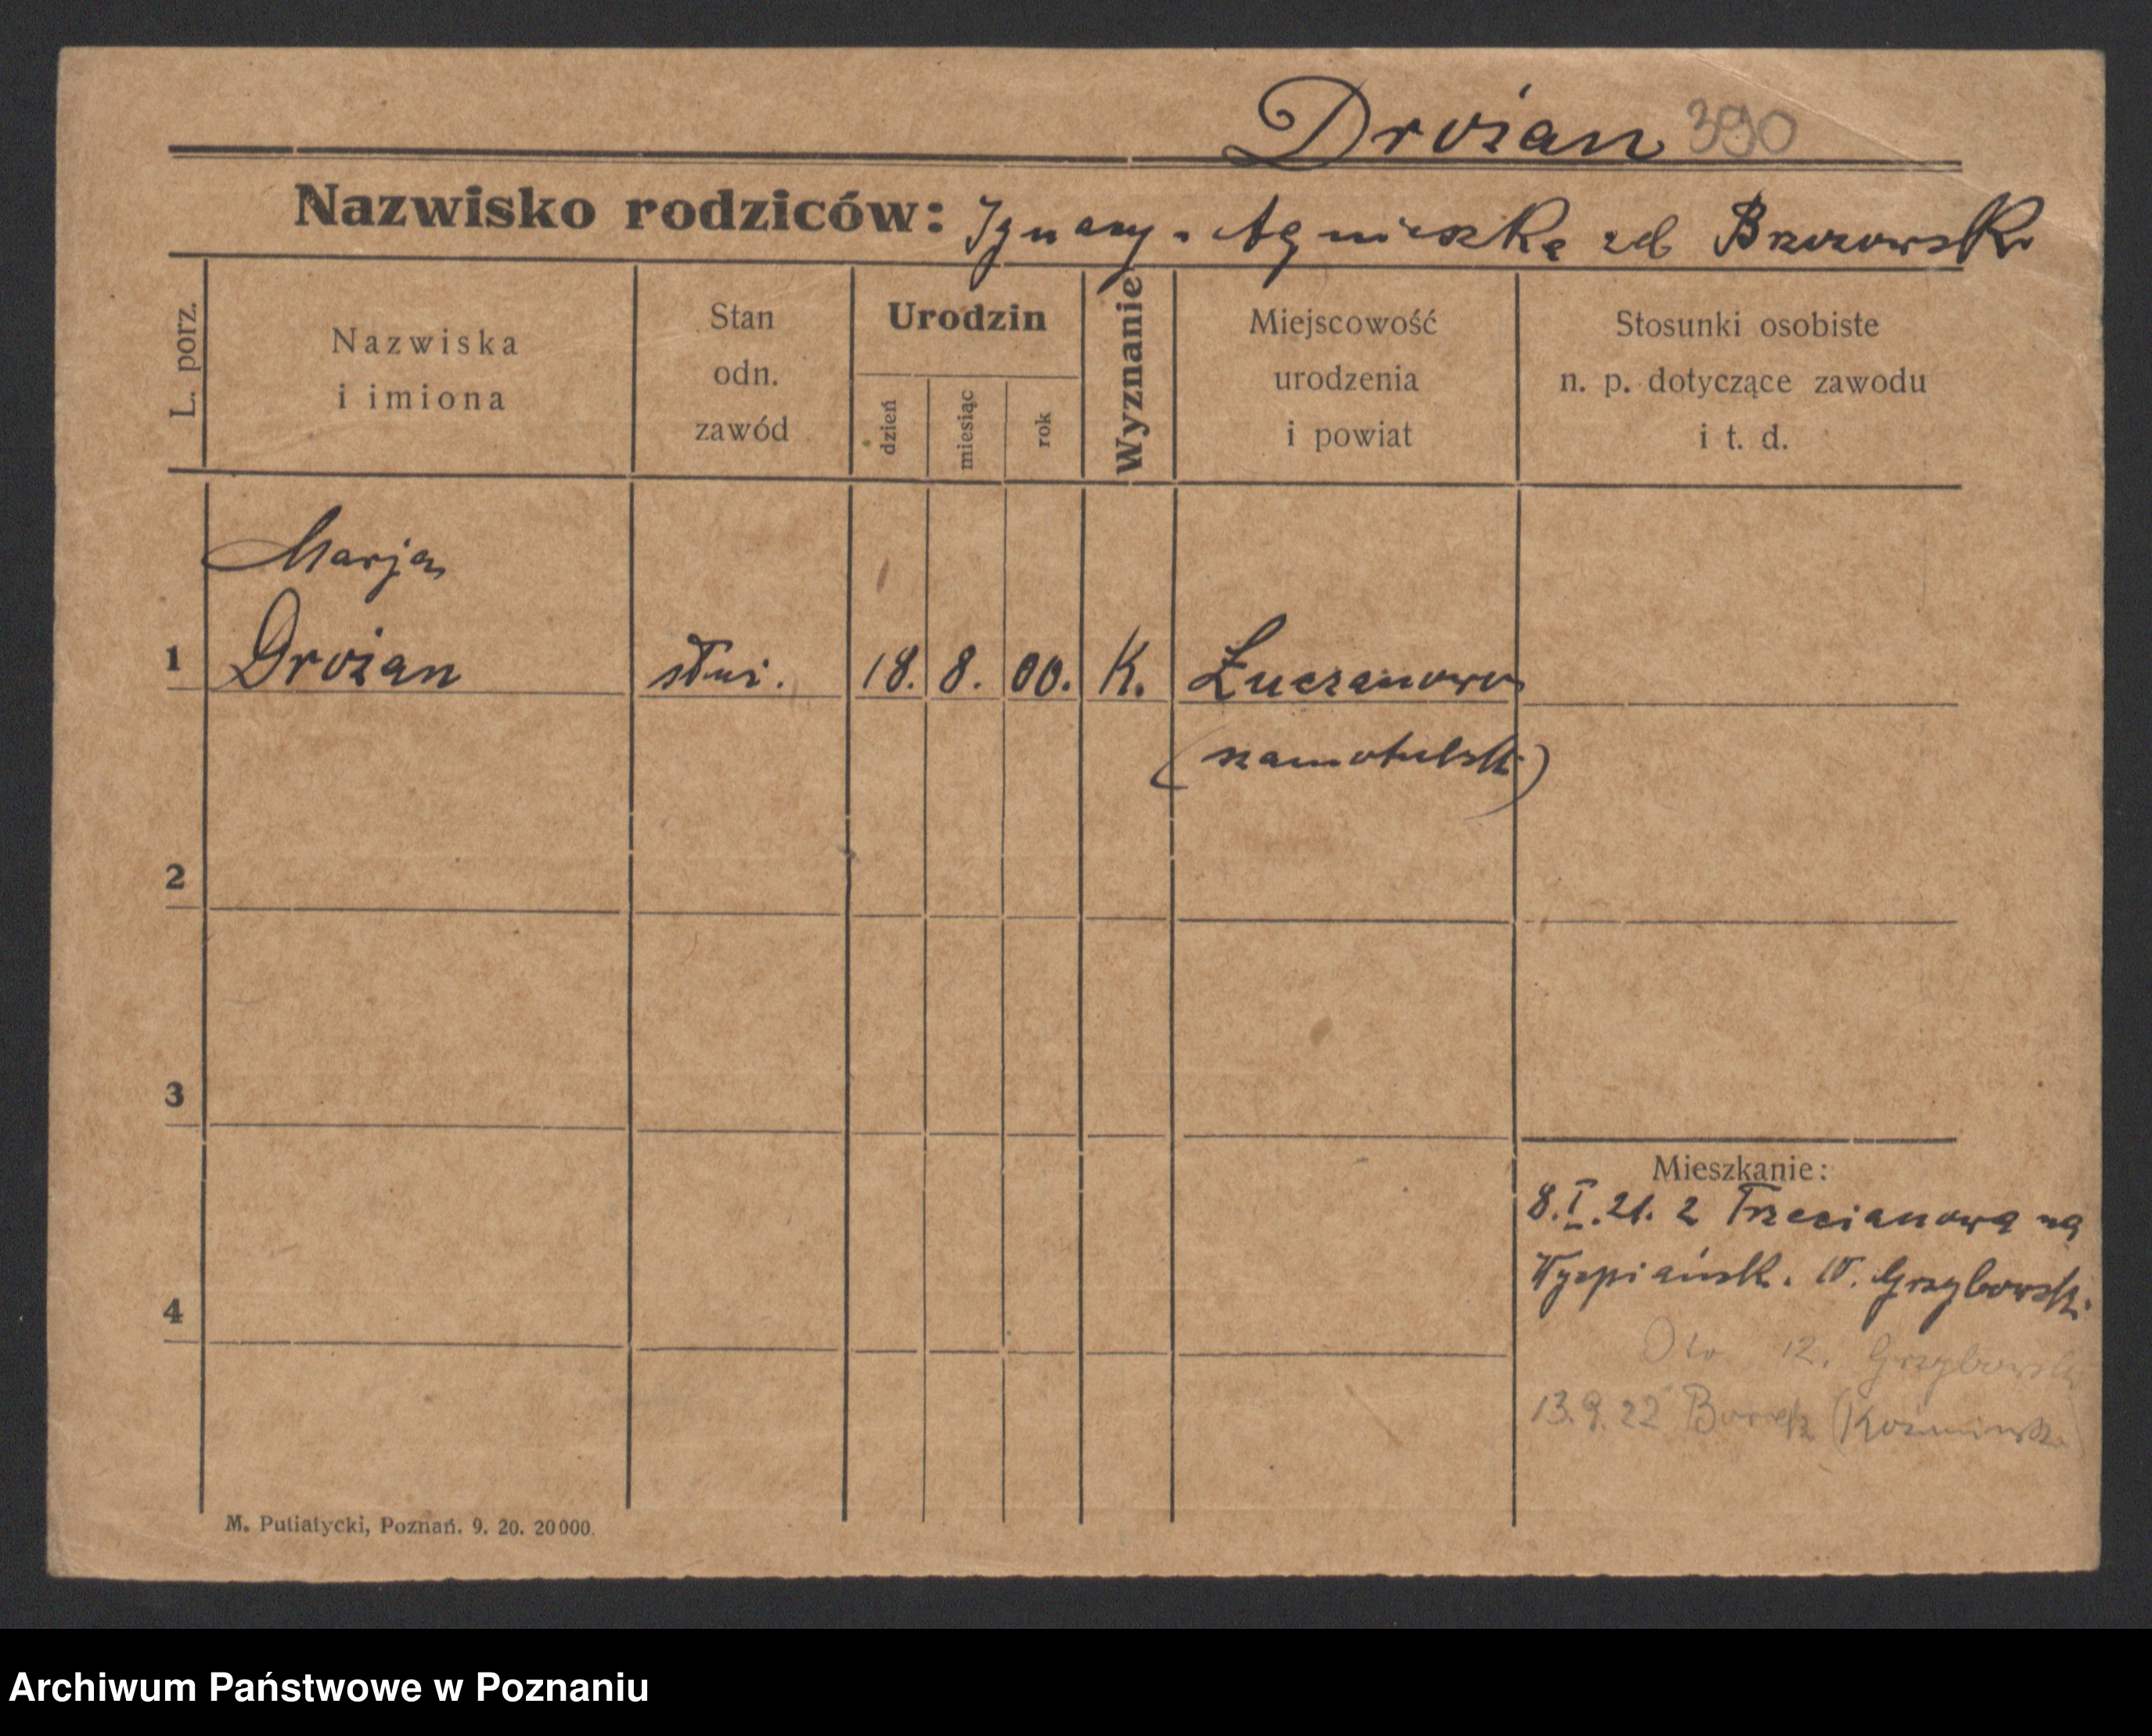 Drożan 390
Nazwisko rodziców: Ignacy - Agnieszka zd Brzozowsk
L. porz.
Nazwiska
i imiona
Stan
odn.
zawód
Urodzin
dzień
miesiąc
rok
Wyznanie
Miejscowość
urodzenia
i powiat
Stosunki osobiste
n. p. dotyczące zawodu
i t. d.
Marja
1 Drożan służ. 18. 8. 00. K.
(szamotulski)
2
3
4
Mieszkanie:
8. I. 21. z Trzecianowa na
Wyspiańsk. Grzybowski
12. Grzybowski
13. 9. 22 Borek (Koźmińsk
M. Putiatycki, Poznań. 9. 20. 20000.
Archiwum Państwowe w Poznaniu